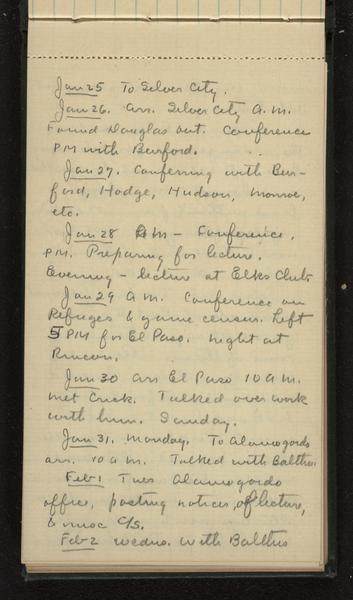 Jan 25 To Silver City.
Jan 26. Arr. Silver City A.M.
Found Douglas out. Conference
PM with Burford.
Jan 27. Conferring with Bur-
ford, Hodge, Hudson, Monroe,
etc.
Jan 28 AM - Conference.
P.M. Preparing for lecture.
Evening - lecture at Elks Club
Jan 29 A.M. Conference on
Refuges & game census. Left
5 PM for El Paso. Night at
Rincon.
Jan 30 Arr El Paso 10 A.M.
Met Crick. Talked over work
with him. Sunday.
Jan 31. Monday. To Alamogordo
arr. 10 A.M. Talked with Balthis
Feb 1 Tues Alamogordo
office, posting notices, of lecture,
& misc C/S.
Feb 2 Wednes. With Balthis